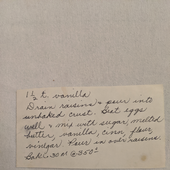 1½ t. vanilla
Drain raisins & pour into
unbaked crust. Beat eggs
well & mix with sugar, melted
butter, vanilla, cinn, flour,
vinegar. Pour in over raisins.
Bake 30" @ 350°